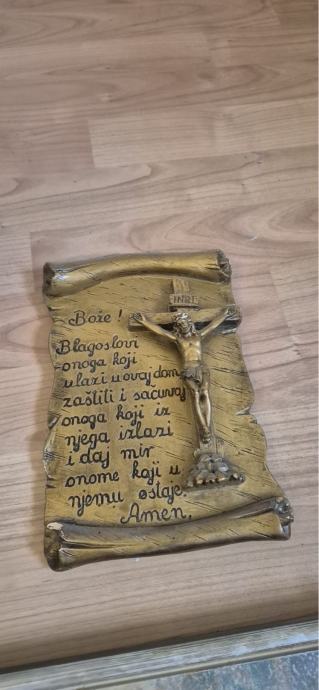 INRI
Bože !
Blagoslovi
onoga koji
ulazi u ovaj dom
zaštiti i sačuvaj
onoga koji iz
njega izlazi
i daj mir
onome koji u
njemu ostaje.
Amen.